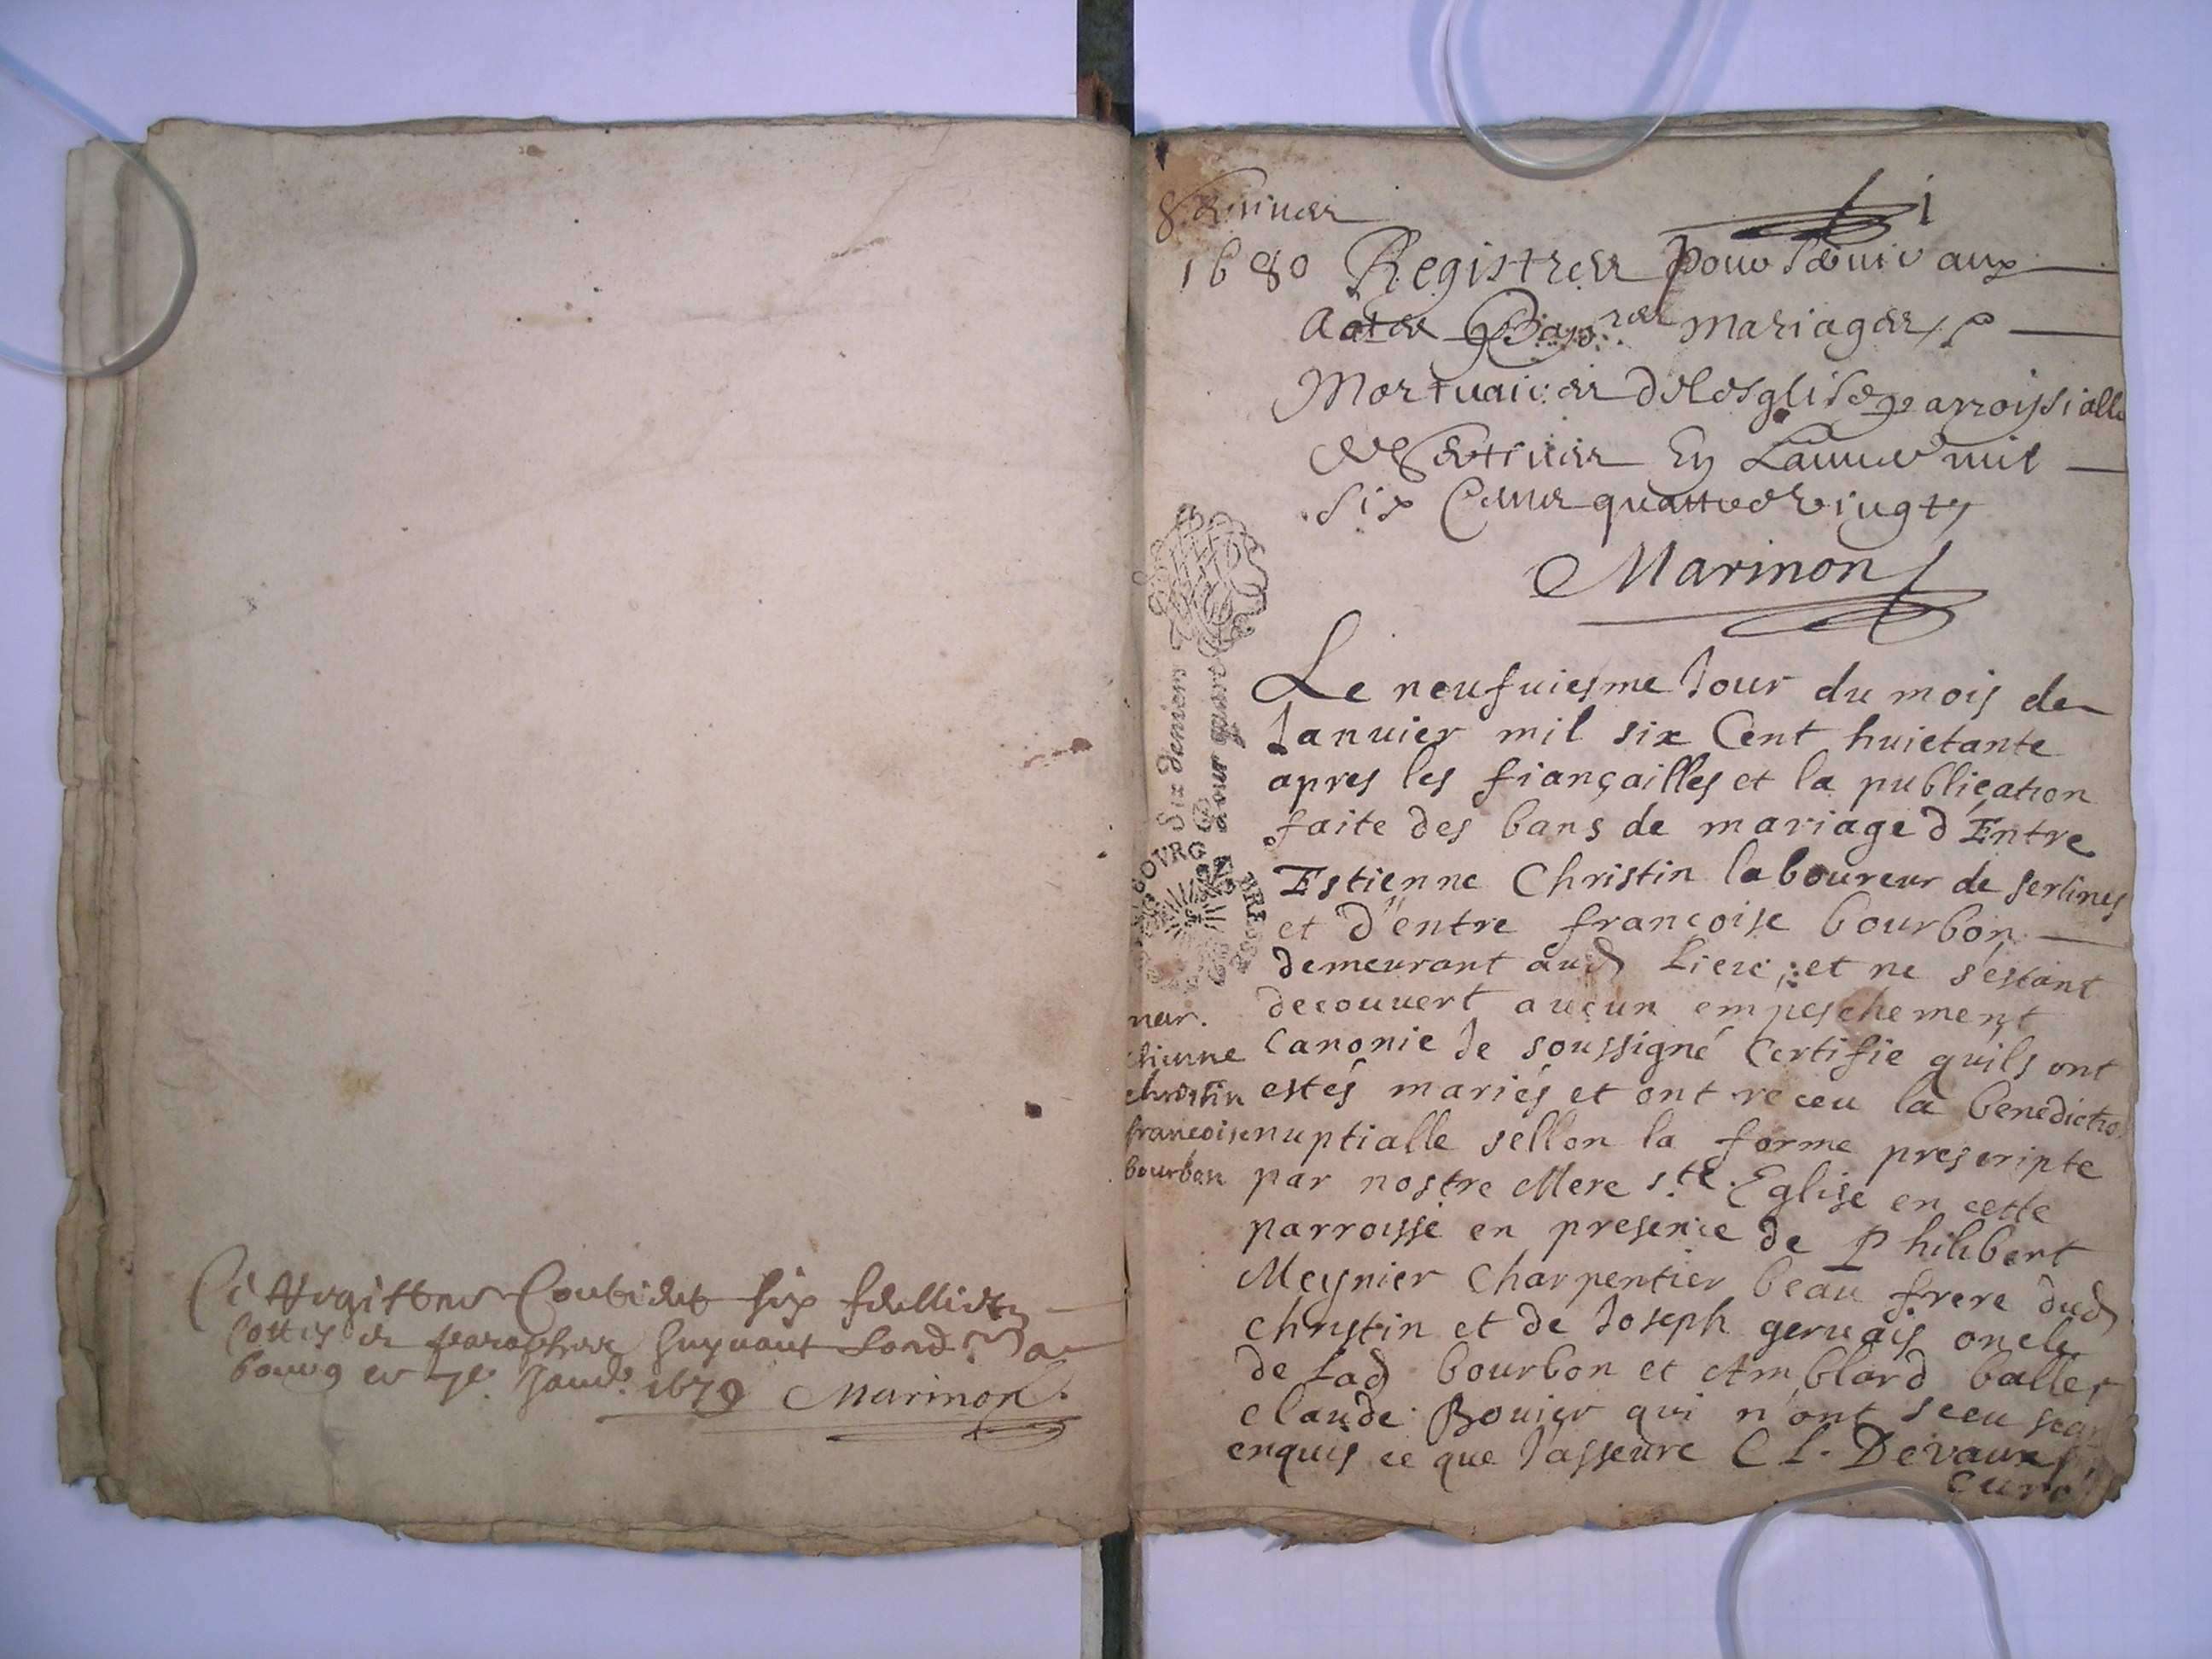 Ce Registre Contient six feullietz
Cottez et paraphez suyvant Lord. a
bourg ce 7e Janv. 1679 Marinon
Sertines
1680 Registres pour servir aux
actes Bap.res mariages, &
Mortuaires de lesglise parroissialle
de Sertines En Lannee mil
six Cens quattre vingtz
Marinon
Six deniers
pour quart
BOURG BRESSE
Le neufuiesme Jour du mois de
Januier mil six Cent huictante
apres les fiançailles et la publication
faite des bans de mariage d'Entre
Estienne Christin laboureur de sertines
et d'entre francoise bourbon
demeurant aud Lieu; et ne s'estant
decouuert aucun empeschement
Canonic Je soussigné Certifie quils ont
estés mariés et ont receu la benedictio
nuptialle sellon la forme prescripte
par nostre Mere s.te Eglise en cette
parroisse en presence de Philibert
Meynier Charpentier beau frere dud
christin et de Joseph geruais oncle
de Lad bourbon et Amblard ballet
claude Bouier qui n'ont sceu
enquis ce que J'asseure Cl. Devaux
Curé
mar.
etienne
christin
francoise
bourbon